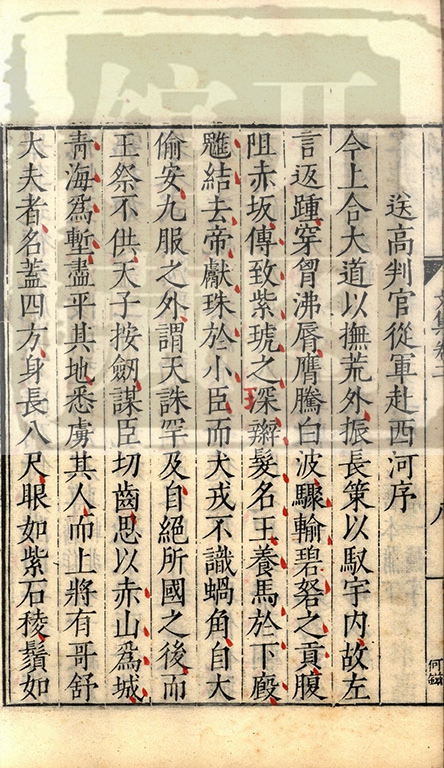 送高判官從軍赴西河序
今上合大道以撫荒外振長策以馭宇内故左
言返踵穿胷沸脣膺騰白波驟輸碧砮之貢腹
阻赤坂傳致紫琥之深辮髮名王養馬於下廄
魋結去帝獻珠於小臣而犬戎不識蝸角自大
偷安九服之外謂天誅罕及自絕所國之後而
王祭不供天子按劒謀臣切齒思以赤山爲城
青海爲塹盡平其地悉虜其人而上將有哥舒
大夫者名蓋四方身長八尺眼如紫石稜鬚如